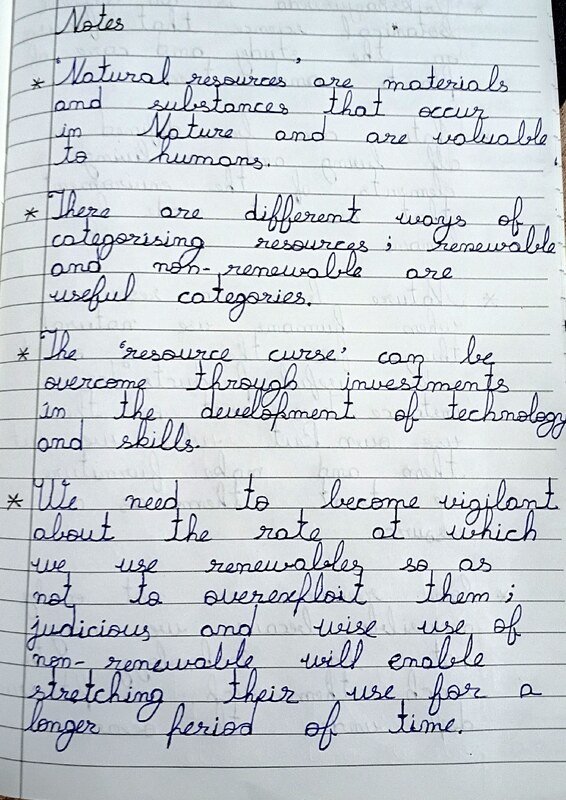 Notes
* 'Natural resources' are materials
and substances that occur
in Nature and are valuable
to humans.
* There are different ways of
categorising resources ; renewable
and non-renewable are
useful categories.
* The 'resource curse' can be
overcome through investments
in the development of technology
and skills.
* We need to become vigilant
about the rate at which
we use renewables so as
not to overexploit them ;
judicious and wise use of
non-renewable will enable
stretching their use for a
longer period of time.